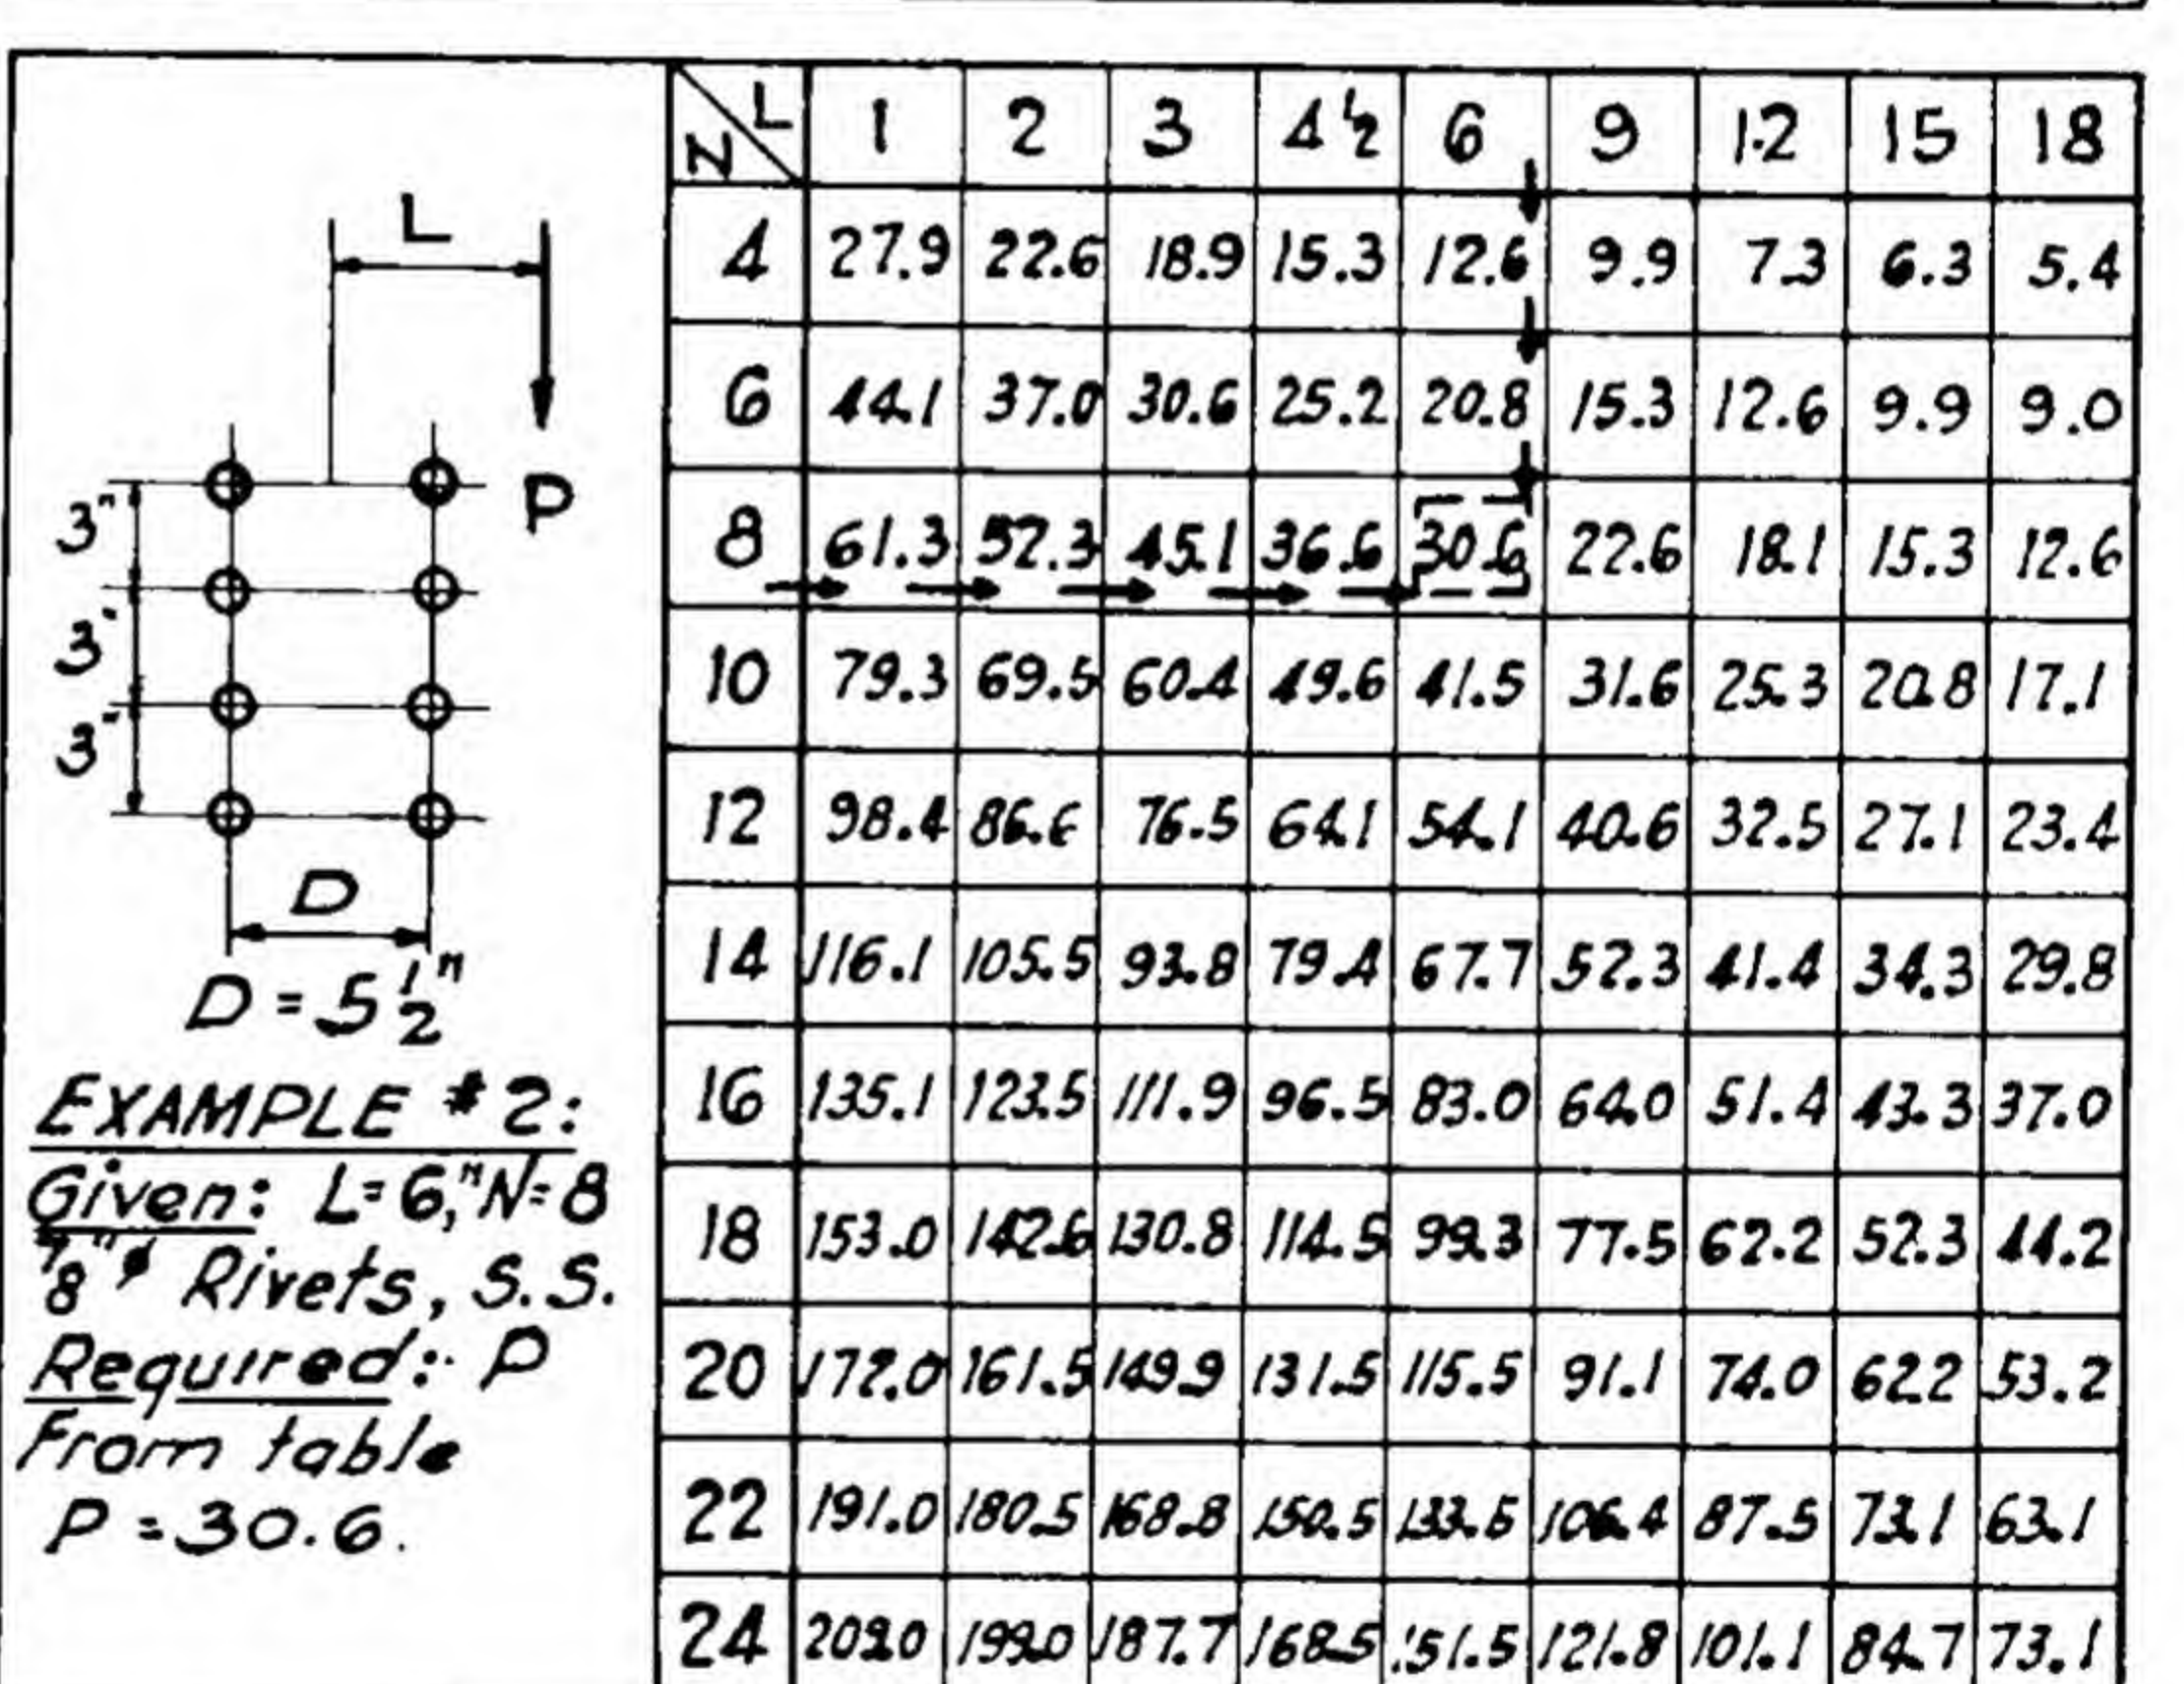 L
P
3"
3"
3"
D
D = 5 1/2"
EXAMPLE #2:
Given: L=6," N=8
7/8"ø Rivets, S.S.
Required: P
From table
P = 30.6.
N L 1 2 3 4 1/2 6 9 12 15 18
4 27.9 22.6 18.9 15.3 12.6 9.9 7.3 6.3 5.4
6 44.1 37.0 30.6 25.2 20.8 15.3 12.6 9.9 9.0
8 61.3 52.3 45.1 36.6 30.6 22.6 18.1 15.3 12.6
10 79.3 69.5 60.4 49.6 41.5 31.6 25.3 20.8 17.1
12 98.4 86.6 76.5 64.1 54.1 40.6 32.5 27.1 23.4
14 116.1 105.5 93.8 79.4 67.7 52.3 41.4 34.3 29.8
16 135.1 123.5 111.9 96.5 83.0 64.0 51.4 43.3 37.0
18 153.0 142.6 130.8 114.5 99.3 77.5 62.2 52.3 44.2
20 172.0 161.5 149.9 131.5 115.5 91.1 74.0 62.2 53.2
22 191.0 180.5 168.8 150.5 106.4 87.5 73.1 63.1
24 209.0 199.0 187.7 168.5 151.5 121.8 101.1 84.7 73.1